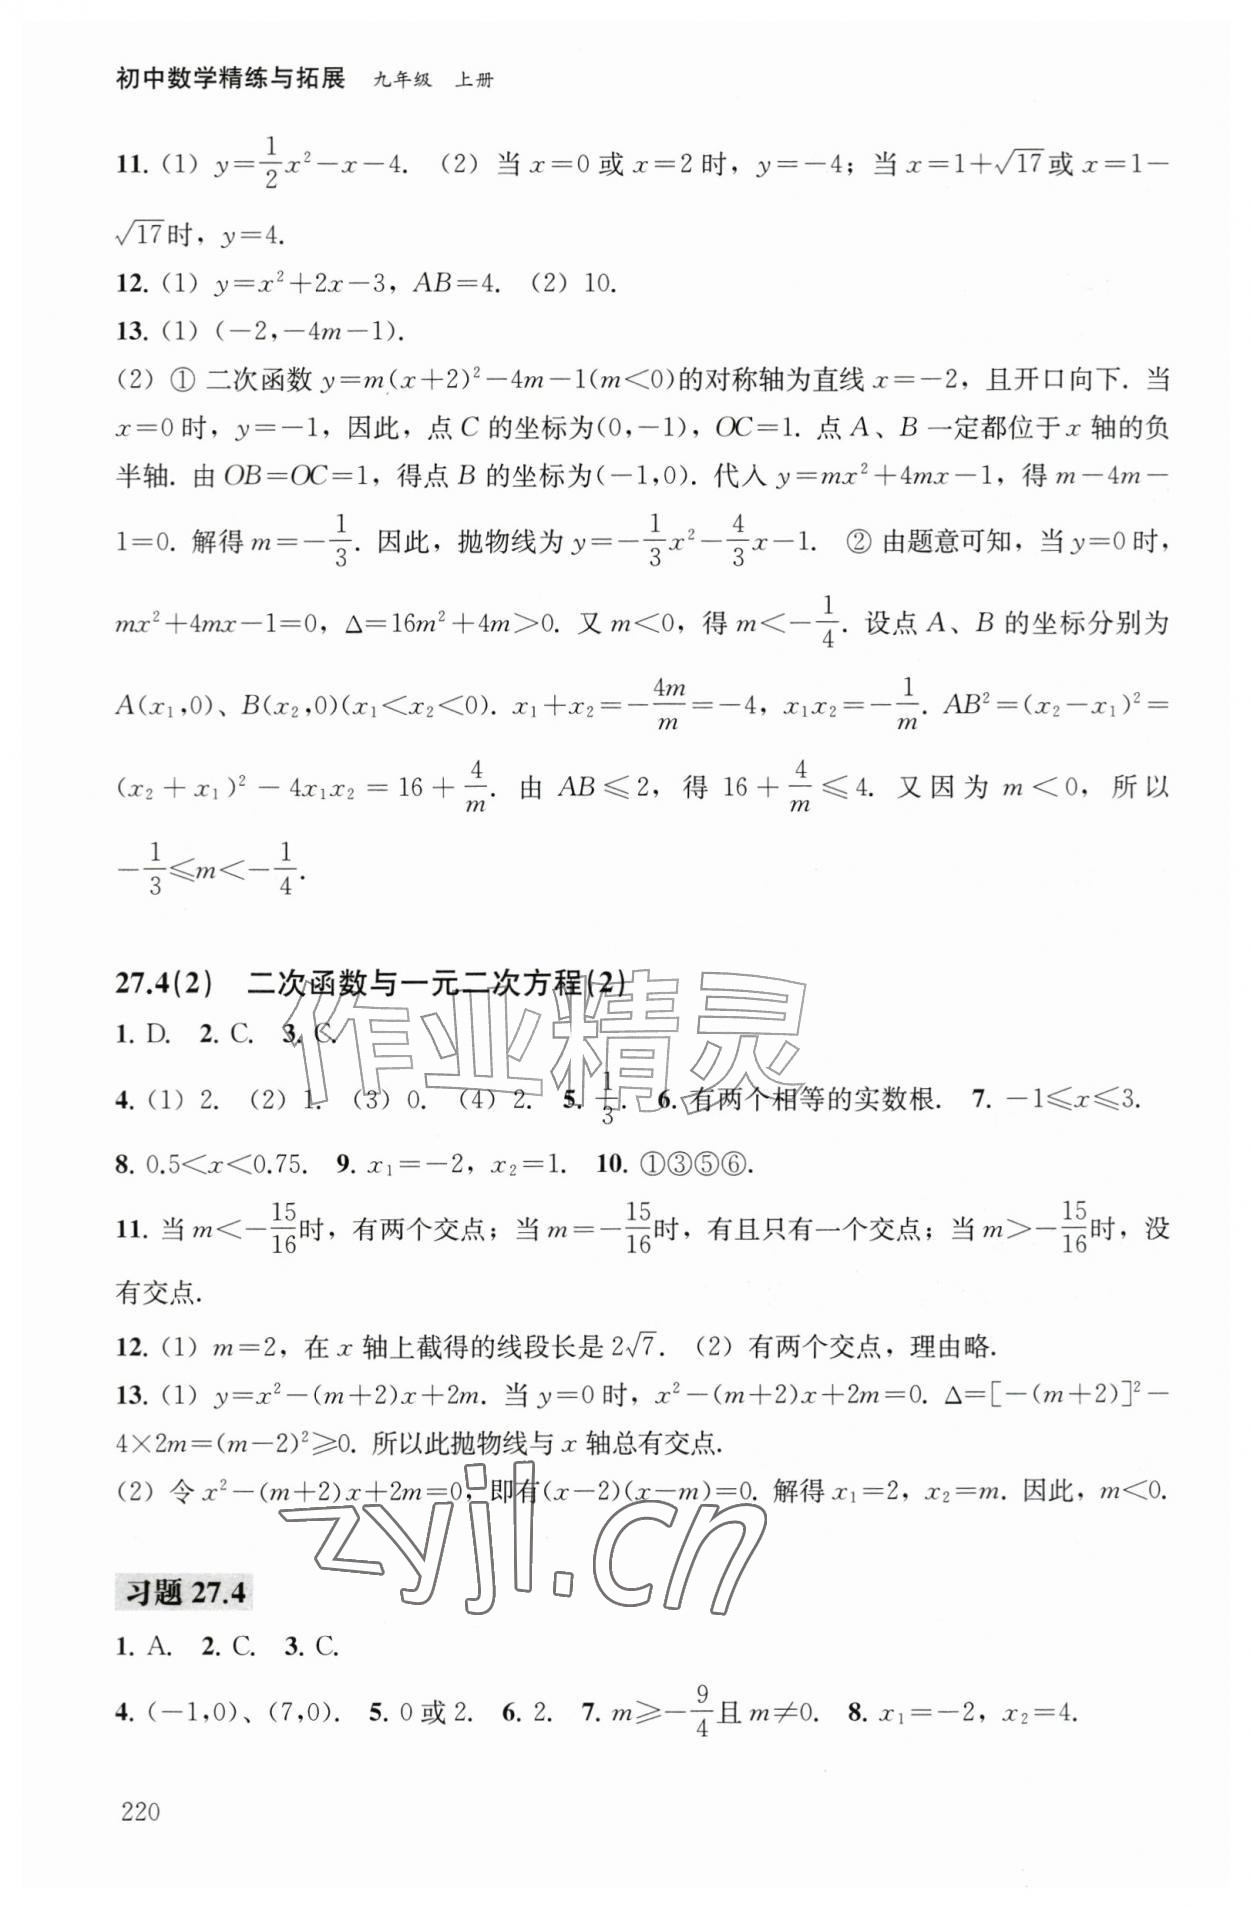 初中数学精练与拓展 九年级 上册
11. (1) y=\frac{1}{2}x²-x-4. (2) 当 x=0 或 x=2 时, y=-4; 当 x=1+√17 或 x=1-
√17 时, y=4.
12. (1) y=x²+2x-3, AB=4. (2) 10.
13. (1) (-2,-4m-1).
(2) ① 二次函数 y=m(x+2)²-4m-1(m<0)的对称轴为直线 x=-2, 且开口向下. 当
x=0 时, y=-1, 因此, 点 C 的坐标为(0,-1), OC=1. 点 A、B 一定都位于 x 轴的负
半轴. 由 OB=OC=1, 得点 B 的坐标为(-1,0). 代入 y=mx²+4mx-1, 得 m-4m-
1=0. 解得 m=-\frac{1}{3}. 因此, 抛物线为 y=-\frac{1}{3}x²-\frac{4}{3}x-1. ② 由题意可知, 当 y=0 时,
mx²+4mx-1=0, Δ=16m²+4m>0. 又 m<0, 得 m<-\frac{1}{4}. 设点 A、B 的坐标分别为
A(x₁,0)、B(x₂,0)(x₁<x₂<0). x₁+x₂=-\frac{4m}{m}=-4, x₁x₂=-\frac{1}{m}. AB²=(x₂-x₁)²=
(x₂+x₁)²-4x₁x₂=16+\frac{4}{m}. 由 AB≤2, 得 16+\frac{4}{m}≤4. 又因为 m<0, 所以
-\frac{1}{3}≤m<-\frac{1}{4}.
27.4(2) 二次函数与一元二次方程(2)
1. D. 2. C. 3. C.
4. (1) 2. (2) 1. (3) 0. (4) 2. 5. \frac{1}{3}. 6. 有两个相等的实数根. 7. -1≤x≤3.
8. 0.5<x<0.75. 9. x₁=-2, x₂=1. 10. ①③⑤⑥.
11. 当 m<-\frac{15}{16}时, 有两个交点; 当 m=-\frac{15}{16}时, 有且只有一个交点; 当 m>-\frac{15}{16}时, 没
有交点.
12. (1) m=2, 在 x 轴上截得的线段长是 2√7. (2) 有两个交点, 理由略.
13. (1) y=x²-(m+2)x+2m. 当 y=0 时, x²-(m+2)x+2m=0. Δ=[-(m+2)]²-
4×2m=(m-2)²≥0. 所以此抛物线与 x 轴总有交点.
(2) 令 x²-(m+2)x+2m=0, 即有(x-2)(x-m)=0. 解得 x₁=2, x₂=m. 因此, m<0.
习题 27.4
1. A. 2. C. 3. C.
4. (-1,0)、(7,0). 5. 0 或 2. 6. 2. 7. m≥-\frac{9}{4}且 m≠0. 8. x₁=-2, x₂=4.
220
作业精灵
zyjl.cn